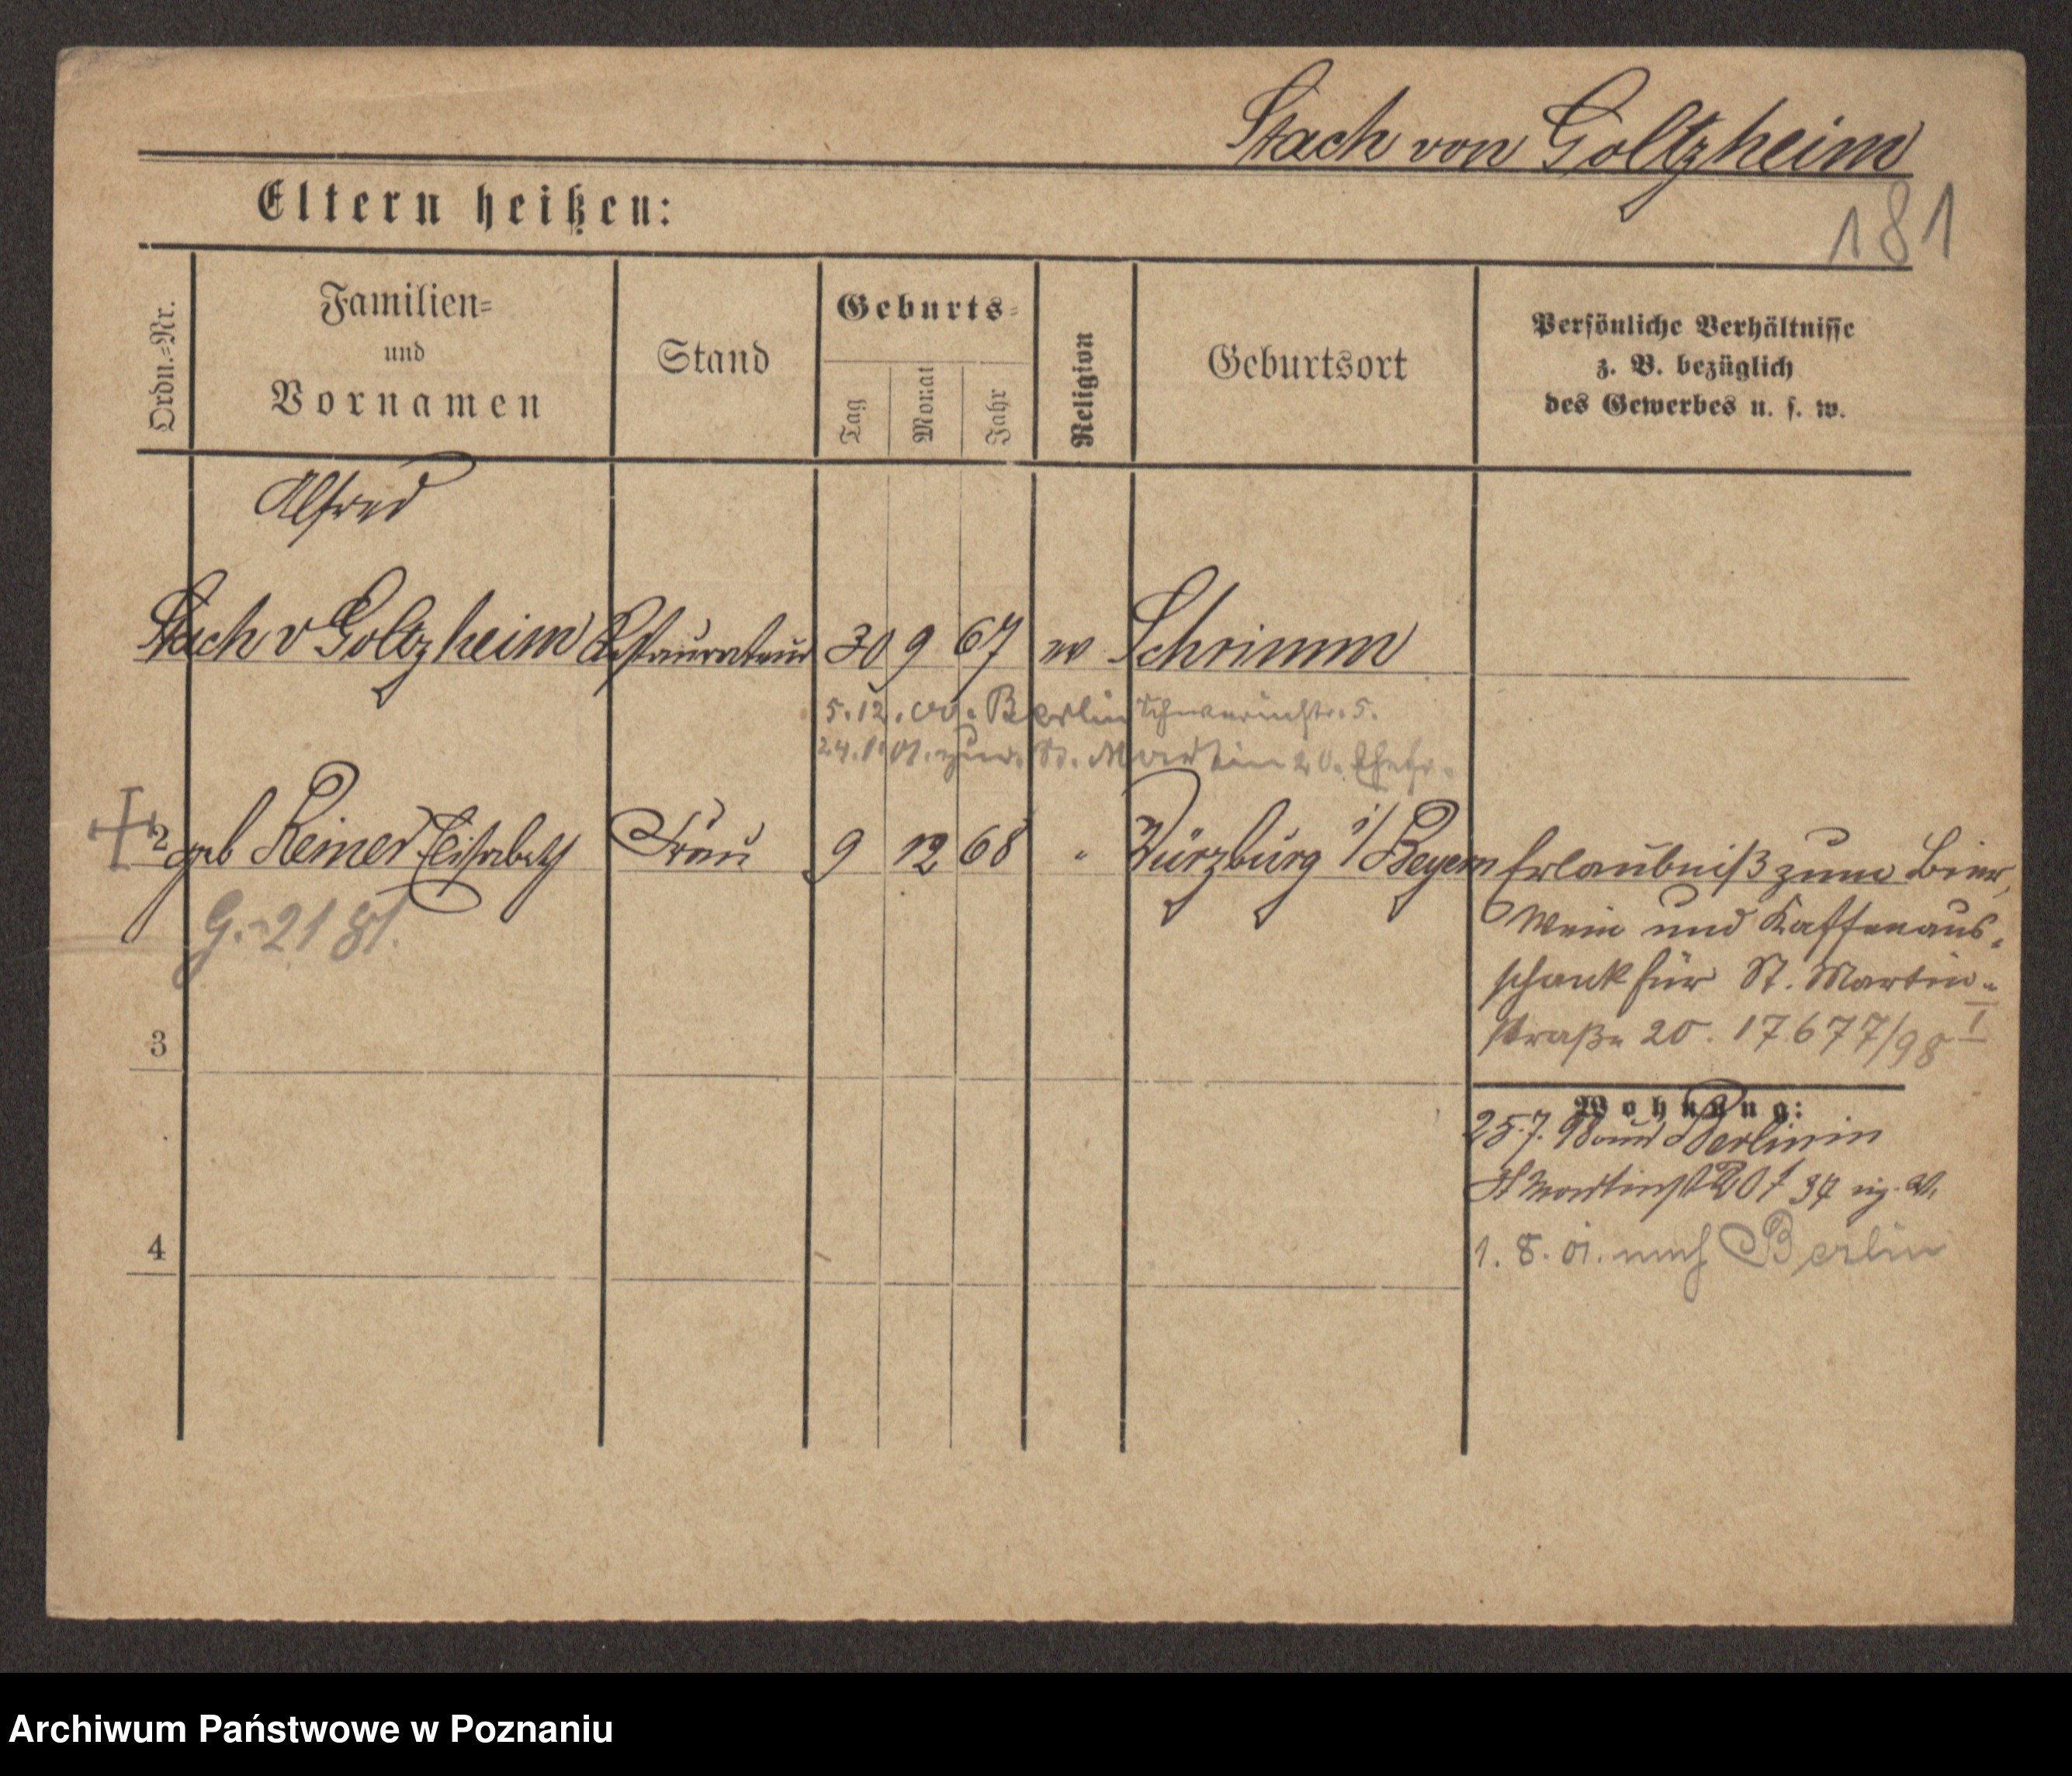 Stach von Goltzheim
181
Eltern heißen:
Ordn.=Nr.
Familien=
und
Vornamen
Stand
Geburts=
Tag
Monat
Jahr
Religion
Geburtsort
Persönliche Verhältnisse
z. B. bezüglich
des Gewerbes u. s. w.
Alfred
Stach v Goltzheim Restaurateur 30 9 67 Schrimm
5.12.00. Berlin 5.
24.1.01. zur. St. Martin 20. Ehefr.
2 geb Reiner Elisabeth Frau 9 12 68 " Würzburg i/Beyern
G. 21 81.
Erlaubniß zum Bier,
Wein und Kaffeeaus-
schank für St. Martin-
straße 20. 17677/98 I
3
Wohnung:
25.7.98 aus Berlin in
St Martinst 20 I 34
1.8.01. nach Berlin
4
Archiwum Państwowe w Poznaniu